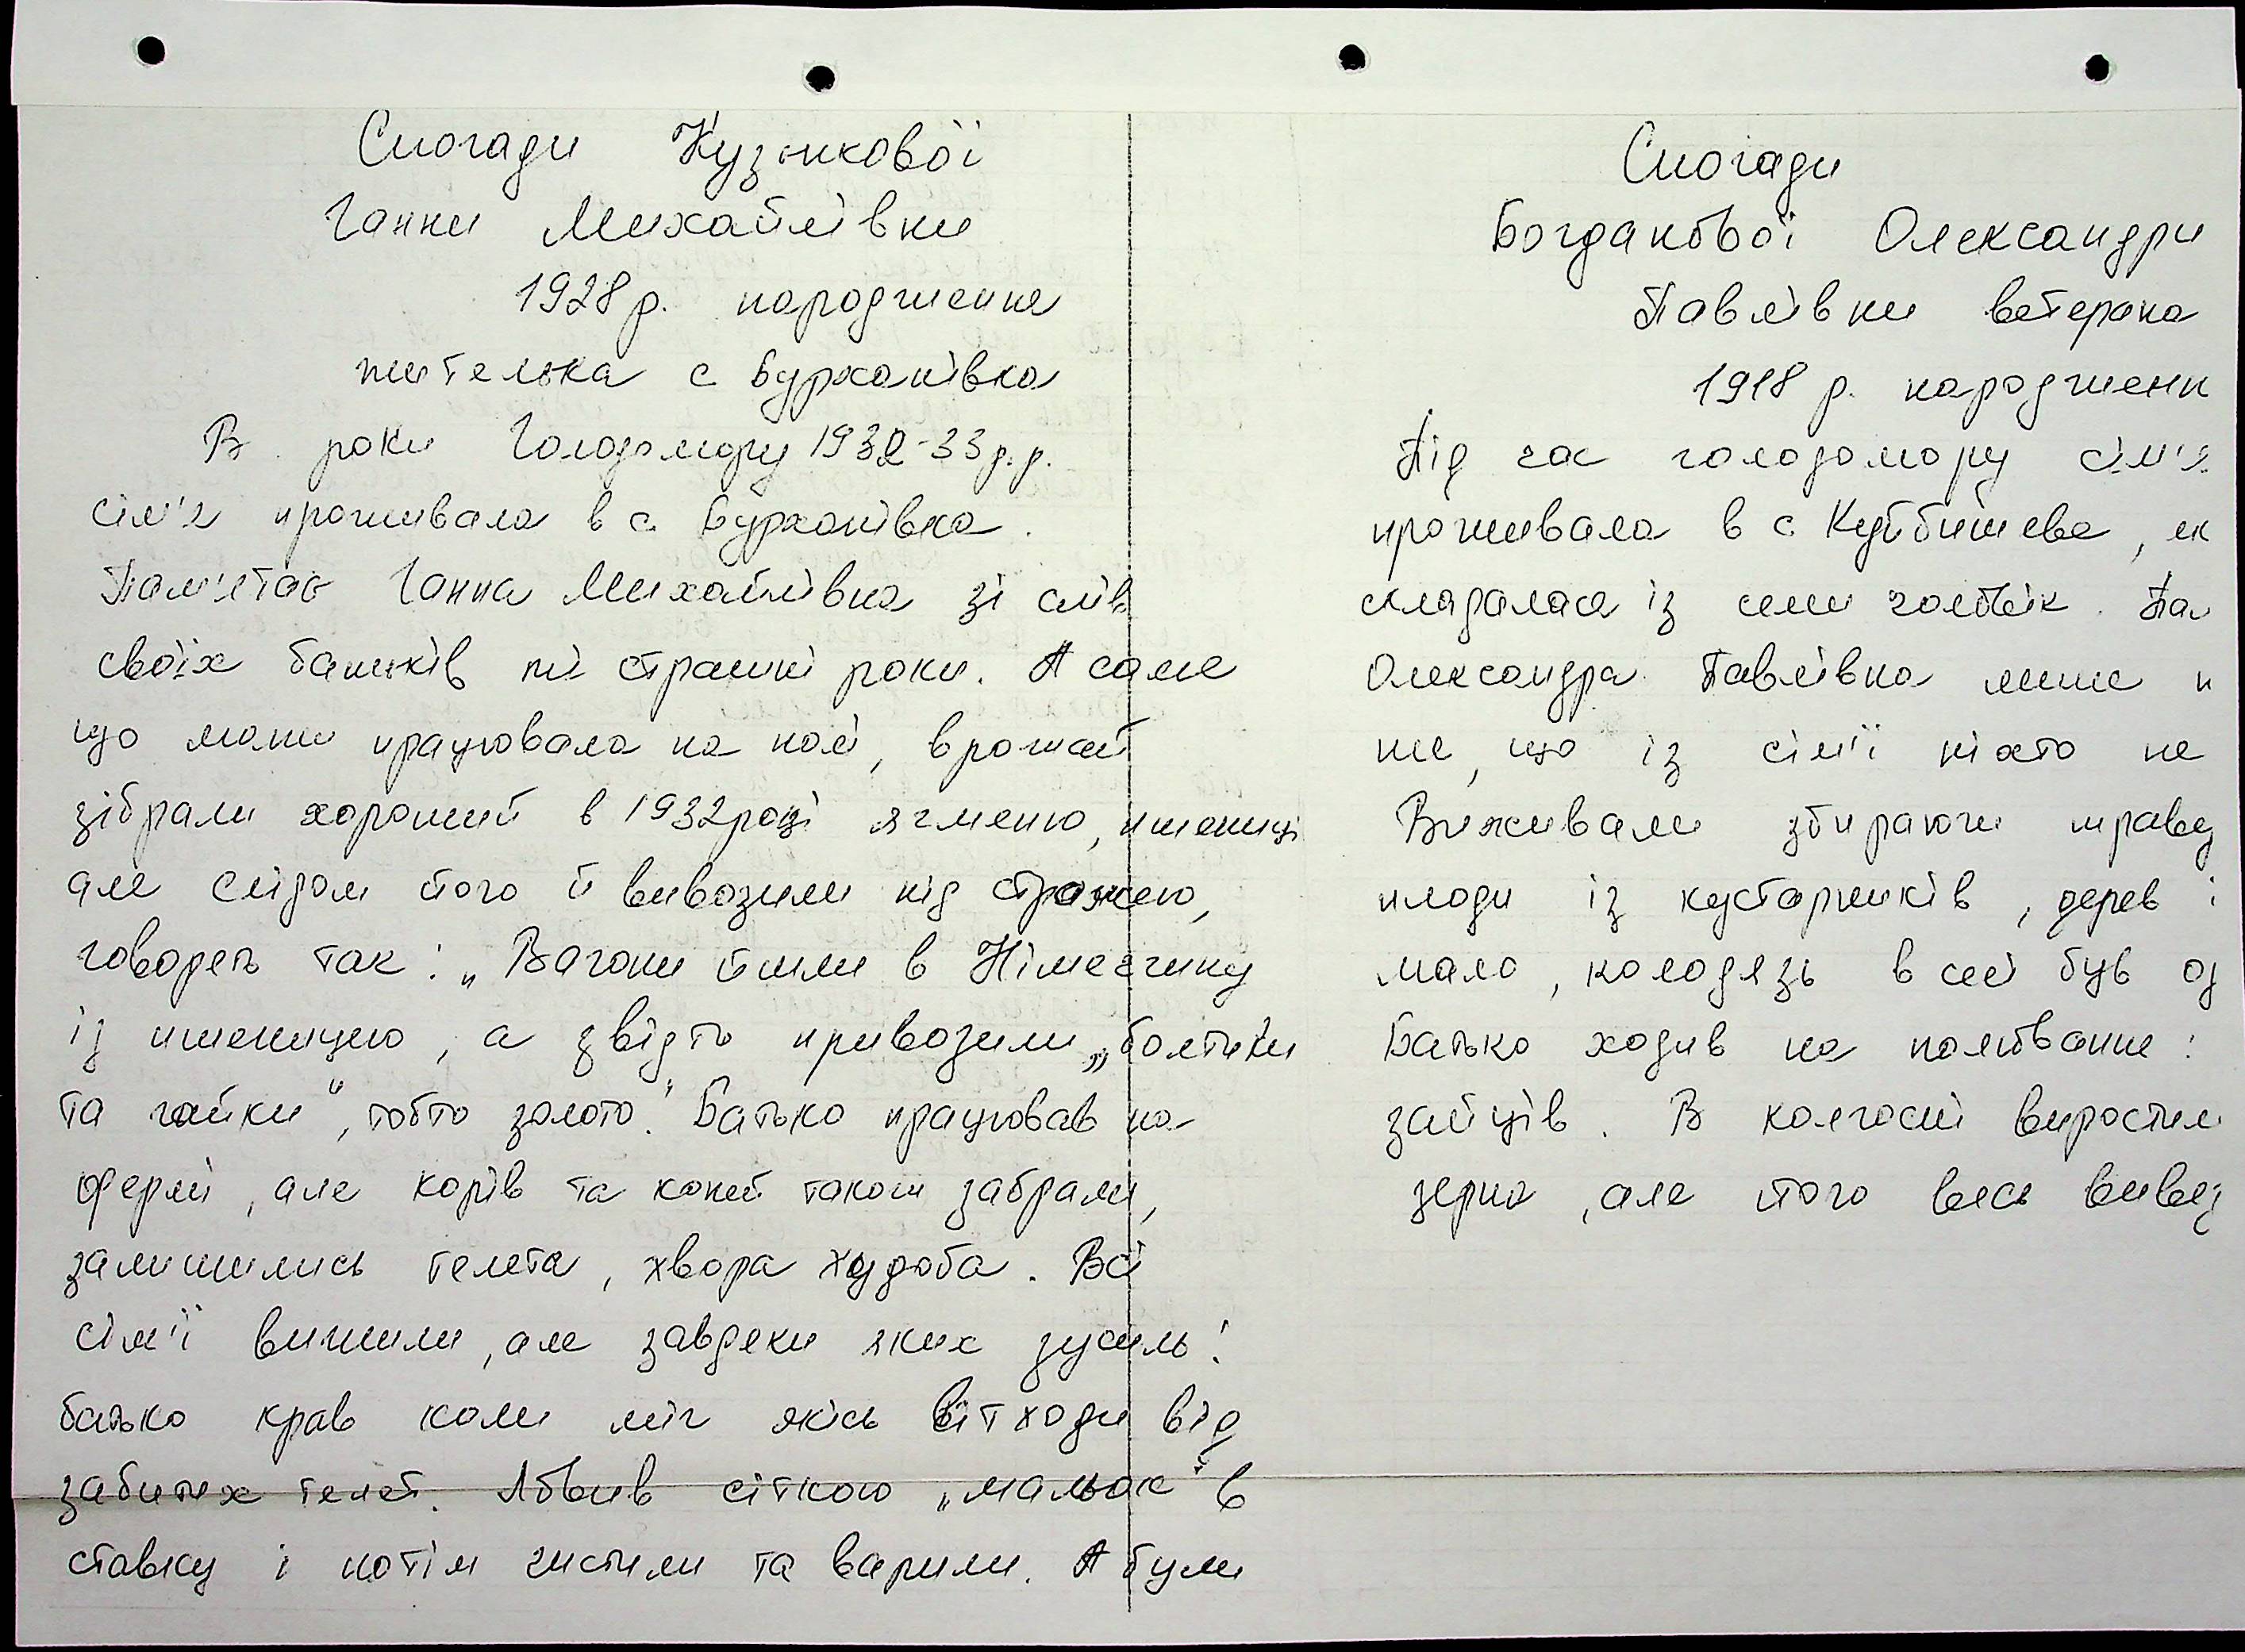 Спогади Кузінкової
Ганни Михайлівни
1928 р. народження
жителька с Бурханівка
В роки Голодомору 1932-33 р.р.
сім'я проживала в с. Бурханівка.
Пам'ятає Ганна Михайлівна зі слів
своїх батьків ті страшні роки. А саме
що мати працювала на полі, врожай
зібрали хороший в 1932 році ячменю, пшениці
але слідом його й вивозили під стражею,
говорять так: „Вагони йшли в Німеччину
із пшеницею, а звідти привозили „болтики
та гайки", тобто золото." Батько працював на
фермі, але корів та коней також забрали,
залишились телята, хвора худоба. Всі
сім'ї вижили, але завдяки яких зусиль!
батько крав коли міг якісь вітходи від
забитих телят. Ловив сіткою „мальок" в
ставку і потім чистили та варили. А були
Спогади
Богданової Олександри
Павлівни ветерана
1918 р. народженн
Під час голодомору сім'я
проживала в с Куйбишеве, як
складалася із семи чоловік. Пам
Олександра Павлівна лише п
те, що із сім'ї ніхто не
Виживали збираючи траву
плоди із кустарників, дерев і
мало, колодязь в селі був од
Батько ходив на полювання:
зайців. В колгоспі виростил
зерно, але його весь вивез